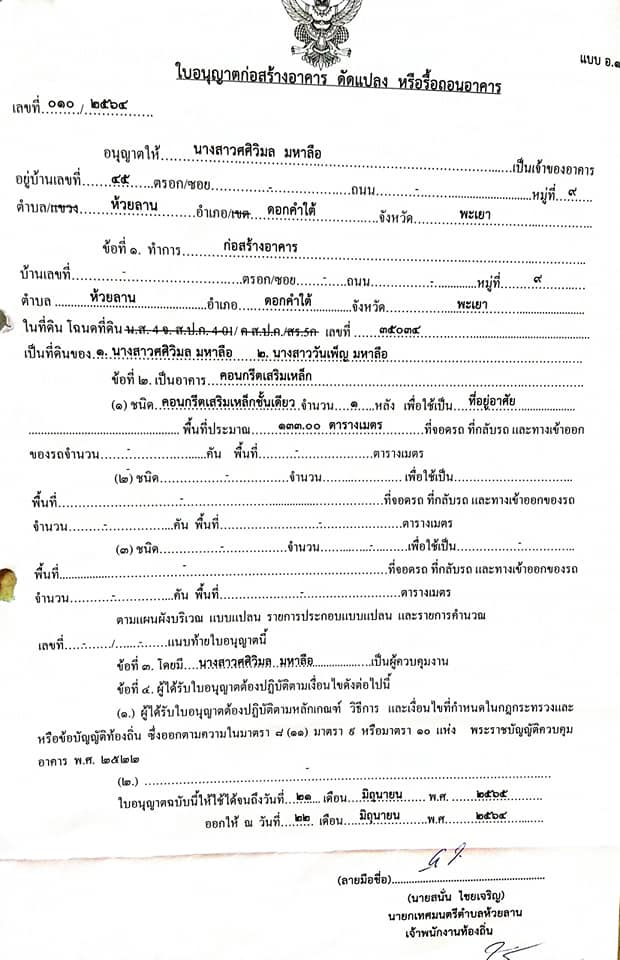 แบบ อ.๑
ใบอนุญาตก่อสร้างอาคาร ดัดแปลง หรือรื้อถอนอาคาร
เลขที่ ๐๑๐ / ๒๕๖๔
อนุญาตให้ นางสาวศศิวิมล มหาลือ เป็นเจ้าของอาคาร
อยู่บ้านเลขที่ ๔๕ ตรอก/ซอย - ถนน - หมู่ที่ ๙
ตำบล/แขวง ห้วยลาน อำเภอ/เขต ดอกคำใต้ จังหวัด พะเยา
ข้อที่ ๑. ทำการ ก่อสร้างอาคาร
บ้านเลขที่ - ตรอก/ซอย - ถนน - หมู่ที่ ๙
ตำบล ห้วยลาน อำเภอ ดอกคำใต้ จังหวัด พะเยา
ในที่ดิน โฉนดที่ดิน น.ส. 4 จ. ส.ป.ก. 4-01/ ค ส.ป.ก./สร.5ก เลขที่ ๓๕๐๓๔
เป็นที่ดินของ ๑. นางสาวศศิวิมล มหาลือ ๒. นางสาววันเพ็ญ มหาลือ
ข้อที่ ๒. เป็นอาคาร คอนกรีตเสริมเหล็ก
(๑) ชนิด คอนกรีตเสริมเหล็กชั้นเดียว จำนวน ๑ หลัง เพื่อใช้เป็น ที่อยู่อาศัย
พื้นที่ประมาณ ๑๓๓.๐๐ ตารางเมตร ที่จอดรถ ที่กลับรถ และทางเข้าออก
ของรถจำนวน - คัน พื้นที่ - ตารางเมตร
(๒) ชนิด - จำนวน - เพื่อใช้เป็น
พื้นที่ - ที่จอดรถ ที่กลับรถ และทางเข้าออกของรถ
จำนวน - คัน พื้นที่ - ตารางเมตร
(๓) ชนิด - จำนวน - เพื่อใช้เป็น -
พื้นที่ - ที่จอดรถ ที่กลับรถ และทางเข้าออกของรถ
จำนวน - คัน พื้นที่ - ตารางเมตร
ตามแผนผังบริเวณ แบบแปลน รายการประกอบแบบแปลน และรายการคำนวณ
เลขที่ - / - แนบท้ายใบอนุญาตนี้
ข้อที่ ๓. โดยมี นางสาวศศิวิมล มหาลือ เป็นผู้ควบคุมงาน
ข้อที่ ๔. ผู้ได้รับใบอนุญาตต้องปฏิบัติตามเงื่อนไขดังต่อไปนี้
(๑.) ผู้ได้รับใบอนุญาตต้องปฏิบัติตามหลักเกณฑ์ วิธีการ และเงื่อนไขที่กำหนดในกฎกระทรวงและ
หรือข้อบัญญัติท้องถิ่น ซึ่งออกตามความในมาตรา ๘ (๑๑) มาตรา ๙ หรือมาตรา ๑๐ แห่ง พระราชบัญญัติควบคุม
อาคาร พ.ศ. ๒๕๒๒
(๒.) -
ใบอนุญาตฉบับนี้ให้ใช้ได้จนถึงวันที่ ๒๑ เดือน มิถุนายน พ.ศ. ๒๕๖๕
ออกให้ ณ วันที่ ๒๒ เดือน มิถุนายน พ.ศ. ๒๕๖๔
(ลายมือชื่อ)
(นายสนั่น ไชยเจริญ)
นายกเทศมนตรีตำบลห้วยลาน
เจ้าพนักงานท้องถิ่น